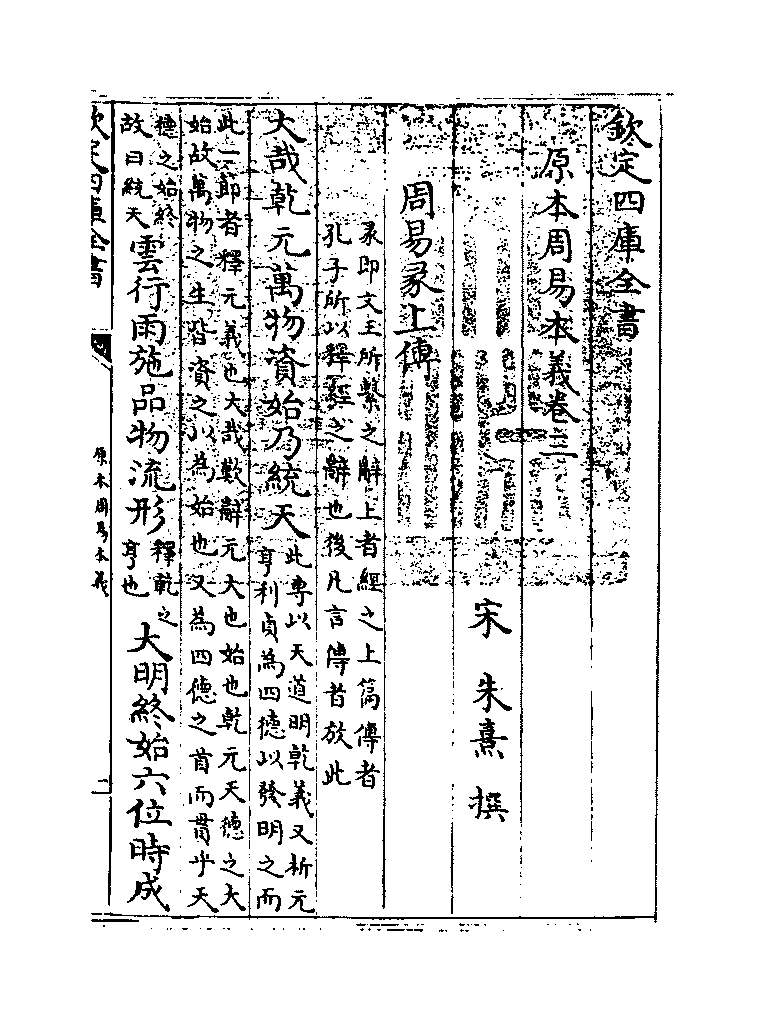 欽定四庫全書
原本周易本義卷三
宋 朱熹 撰
周易彖上傳
彖即文王所繫之辭上者經之上篇傳者
孔子所以釋經之辭也後凡言傳者放此
大哉乾元萬物資始乃統天
此專以天道明乾義又析元
亨利貞為四德以發明之而
此一節首釋元義也大哉歎辭元大也始也乾元天德之大
始故萬物之生皆資之以為始也又為四德之首而貫乎天
德之始終
故曰統天
雲行雨施品物流形
釋乾之
亨也
大明終始六位時成
欽定四庫全書
原本周易本義
一